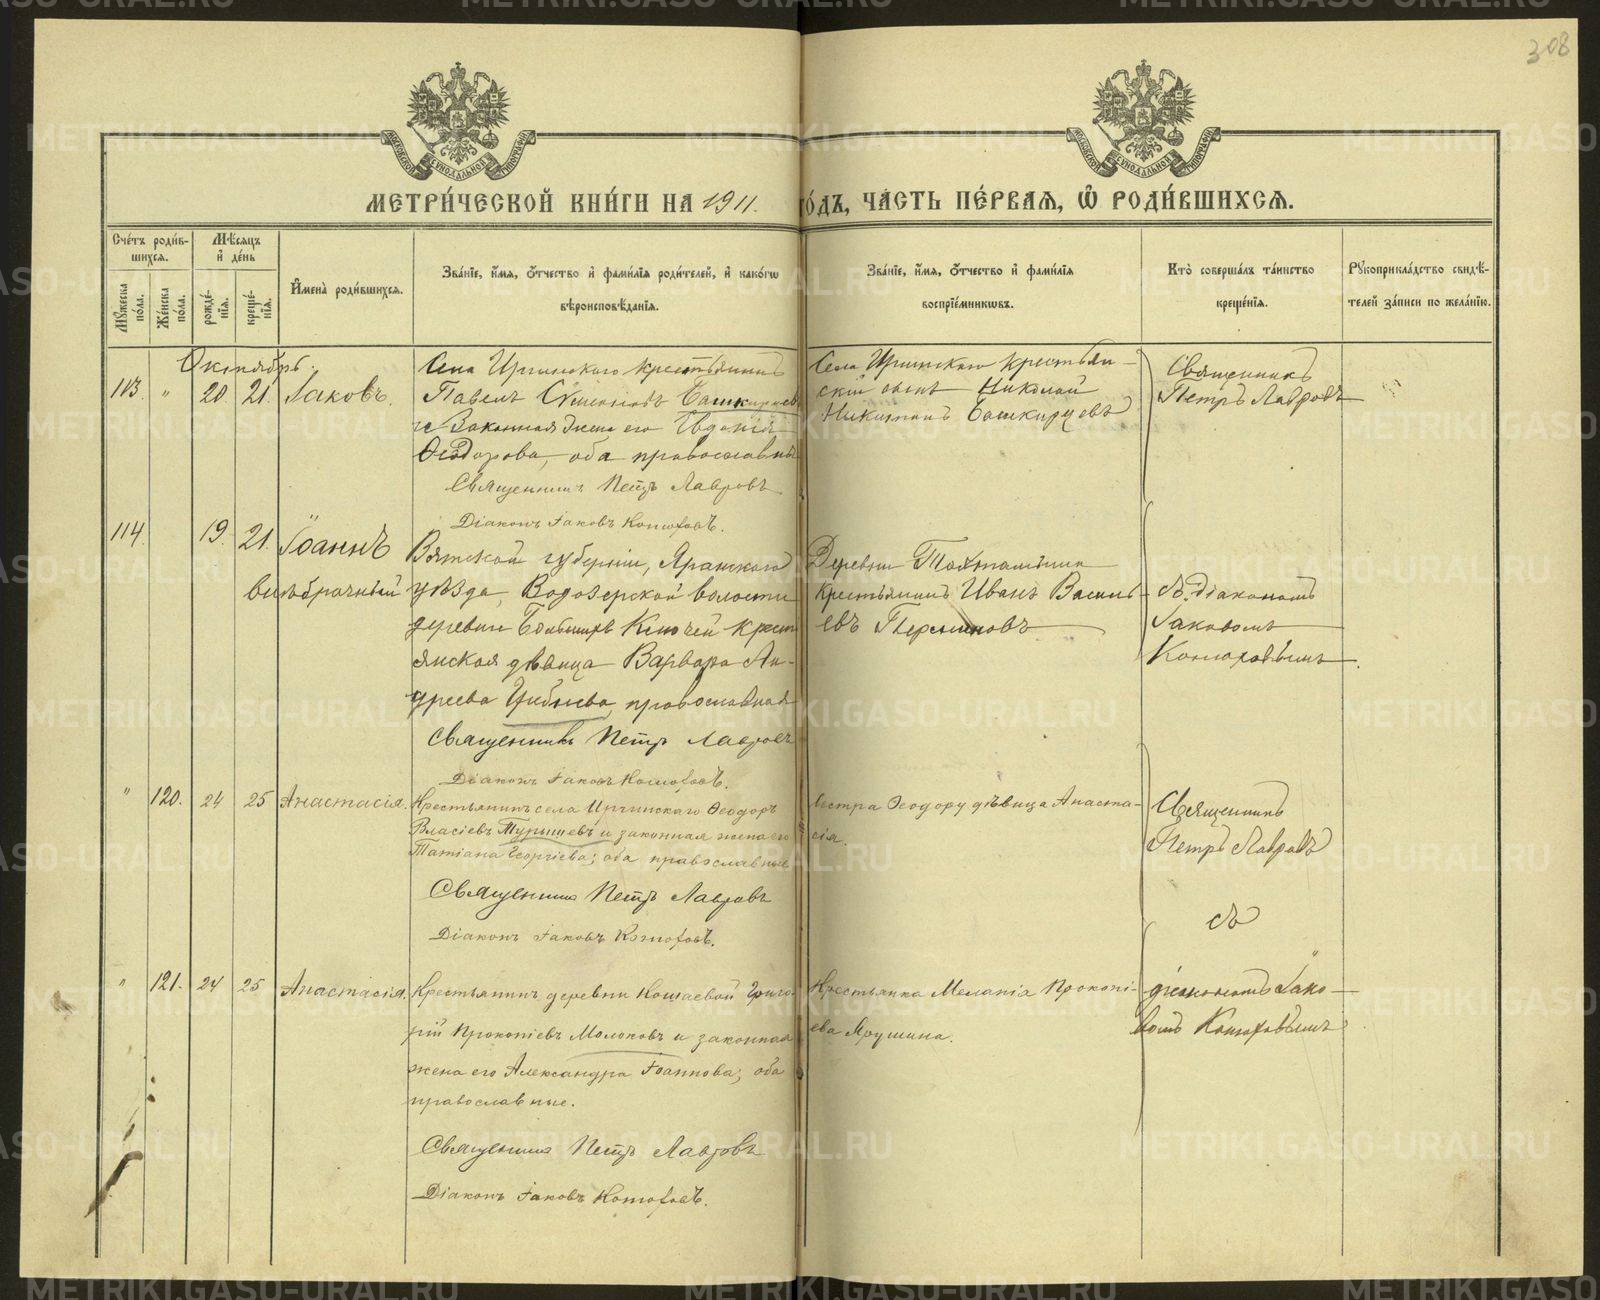 308
МОСКОВСКОЙ СУНОДАЛЬНОЙ ТИПОГРАФІИ
МОСКОВСКОЙ СУНОДАЛЬНОЙ ТИПОГРАФІИ
МЕТРИ́ЧЕСКОЙ КНИ́ГИ НА 1911 ГО́ДЪ, ЧА́СТЬ ПЕ́РВАЯ, Ѽ РОДИ́ВШИХСѦ.
Сче́тъ роди́в-
шихсѧ.
Мꙋ́жеска по́ла.
Же́нска по́ла.
Мѣ́сяцъ
и҆ де́нь
рожде́-
нїѧ.
креще́-
нїѧ.
И҆мена̀ роди́вшихсѧ.
Зва́нїе, и҆́мѧ, ѻ҆́тчество и҆ фами́лїѧ роди́телей, и҆ како́гѡ
вѣроисповѣ́данїѧ.
Зва́нїе, и҆́мѧ, ѻ҆́тчество и҆ фами́лїѧ
воспрїе́мникѡвъ.
Кто̀ соверша́лъ та́инство
креще́нїѧ.
Рꙋкоприкла́дство свидѣ́-
телей за́писи по жела́нїю.
Октябрь
113. " 20. 21. Іаковъ.
Села Иргинскаго крестьянинъ
Павелъ Симеоновъ Башкирцевъ
и законная жена его Евдокія
Ѳеодорова, оба православны
Священникъ Петръ Лавровъ
Діаконъ Іаковъ Конюховъ.
Села Иргинскаго крестьян-
скій сынъ Николай
Никитинъ Башкирцевъ
Священникъ
Петръ Лавровъ
114. 19. 21. Іоаннъ
внѣбрачный
Вятской губерніи, Яранскаго
уѣзда, Водозерской волости
деревни Ключей крест
янская дѣвица Варвара Ан-
дреева православная
Священникъ Петръ Лавровъ
Діаконъ Іаковъ Конюховъ.
Деревни
крестьянинъ Иванъ Василь-
евъ Перминовъ
съ діакономъ
Іаковомъ
Конюховымъ.
" 120. 24 25 Анастасія.
Крестьянинъ села Иргинскаго Ѳеодоръ
Власіевъ Турышевъ и законная жена его
Татіана Георгіева; оба православные
Священникъ Петръ Лавровъ
Діаконъ Іаковъ Конюховъ.
Сестра Ѳеодору дѣвица Анаста-
сія.
Священникъ
Петръ Лавровъ
съ
" 121. 24 25 Анастасія.
Крестьянинъ деревни Кошаевой Григо-
рій Прокопіевъ Молоковъ и законная
жена его Александра Іоаннова; оба
православные.
Священникъ Петръ Лавровъ
Діаконъ Іаковъ Конюховъ.
Крестьянка Меланія Прокопі-
ева Ярушина.
діакономъ Іако-
вомъ Конюховымъ
METRIKI.GASO-URAL.RU